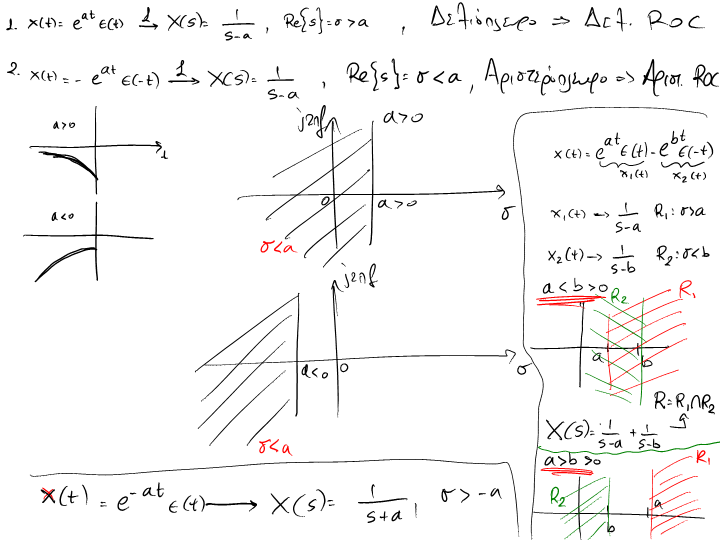 1. x(t) = e^{at} ε(t) →^{L} X(s) = 1/(s-a), Re{s} = σ > a, Δεξιόπλευρο ⇒ Δεξ. ROC
2. x(t) = - e^{at} ε(-t) →^{L} X(s) = 1/(s-a), Re{s} = σ < a, Αριστερόπλευρο ⇒ Αρισ. ROC
a>0
t
a<0
j2πf
a>0
0
a>0
σ
σ<a
j2πf
a<0
0
σ
σ<a
x(t) = e^{at} ε(t) - e^{bt} ε(-t)
x₁(t) x₂(t)
x₁(t) → 1/(s-a) R₁: σ>a
x₂(t) → 1/(s-b) R₂: σ<b
a < b > 0
R₂
R₁
a
b
R = R₁∩R₂
X(s) = 1/(s-a) + 1/(s-b)
a>b>0
R₁
R₂
b
a
x(t) = e^{-at} ε(t) → X(s) = 1/(s+a), σ > -a